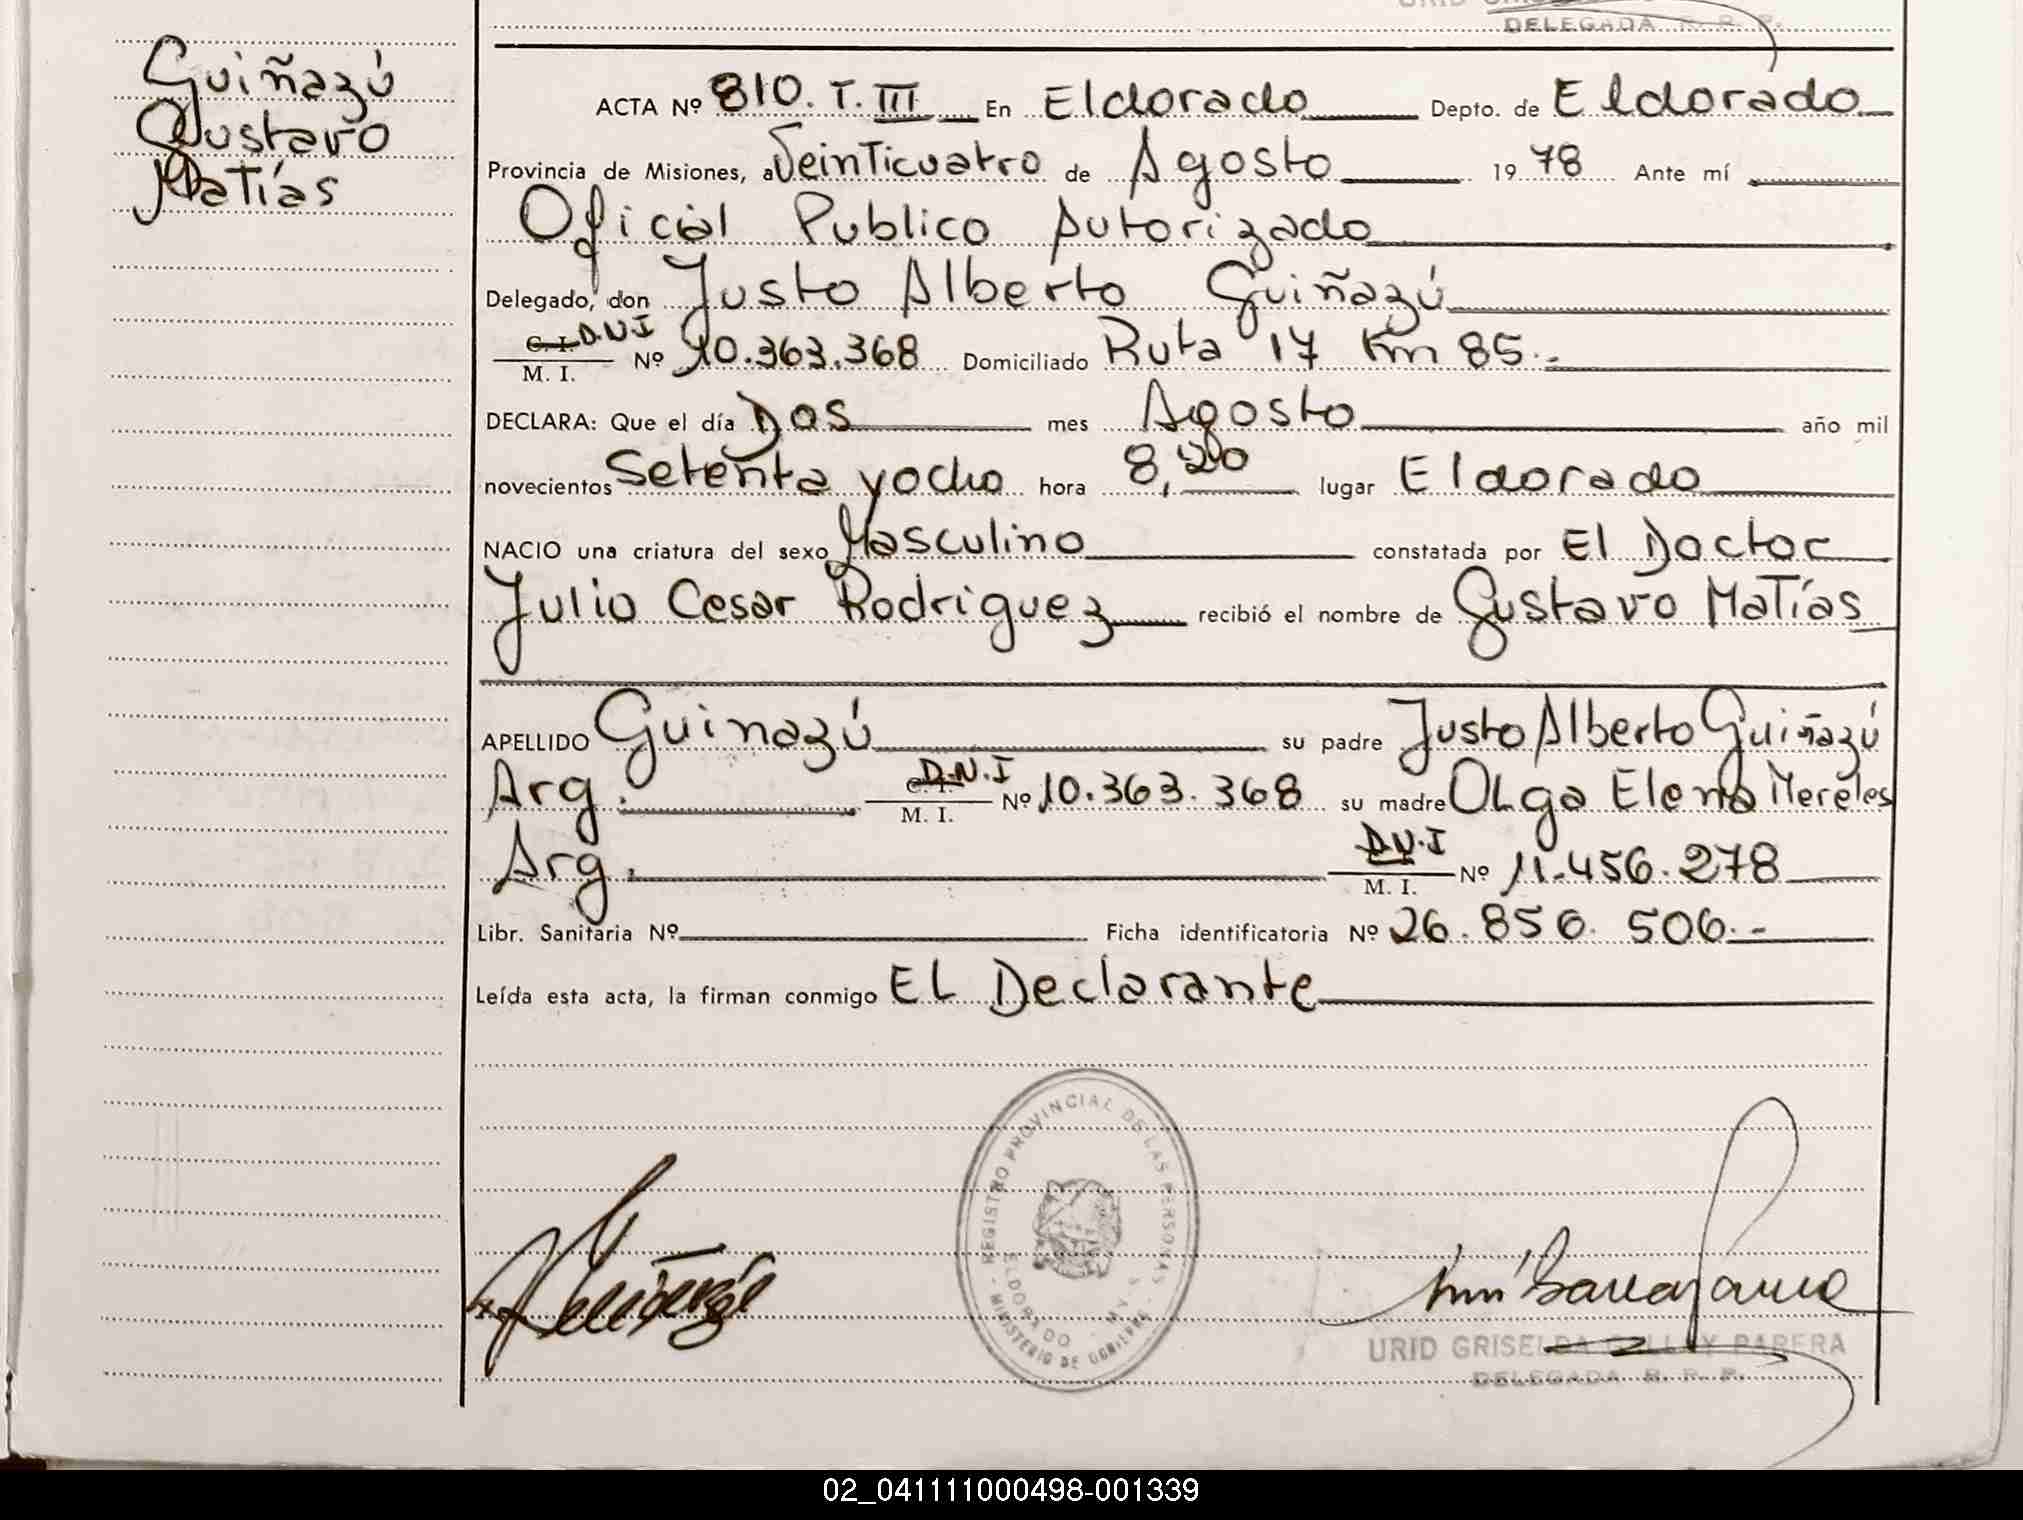 DELEGADA R. R. P.
Guiñazú
Gustavo
Matías
ACTA Nº 810. T. III En Eldorado Depto. de Eldorado
Provincia de Misiones, a Veinticuatro de Agosto 19 78 Ante mí
Oficial Publico Autorizado
Delegado, don Justo Alberto Guiñazú
C. I. D.N.I
M. I. Nº 10.363.368 Domiciliado Ruta 17 Km 85.-
DECLARA: Que el día Dos mes Agosto año mil
novecientos Setenta yocho hora 8,20 lugar Eldorado
NACIO una criatura del sexo Masculino constatada por El Doctor
Julio Cesar Rodriguez recibió el nombre de Gustavo Matías
APELLIDO Guinazú su padre Justo Alberto Guiñazú
Arg. C. I. D.N.I
M. I. Nº 10.363.368 su madre OLga Elena Mereles
Arg. D.N.I
M. I. Nº 11.456.278
Libr. Sanitaria Nº Ficha identificatoria Nº 26.856.506.-
Leída esta acta, la firman conmigo EL Declarante
REGISTRO PROVINCIAL DE LAS PERSONAS
ELDORADO
MINISTERIO DE GOBIERNO
URID GRISELDA PARERA
DELEGADA R. R. P.
02_041111000498-001339